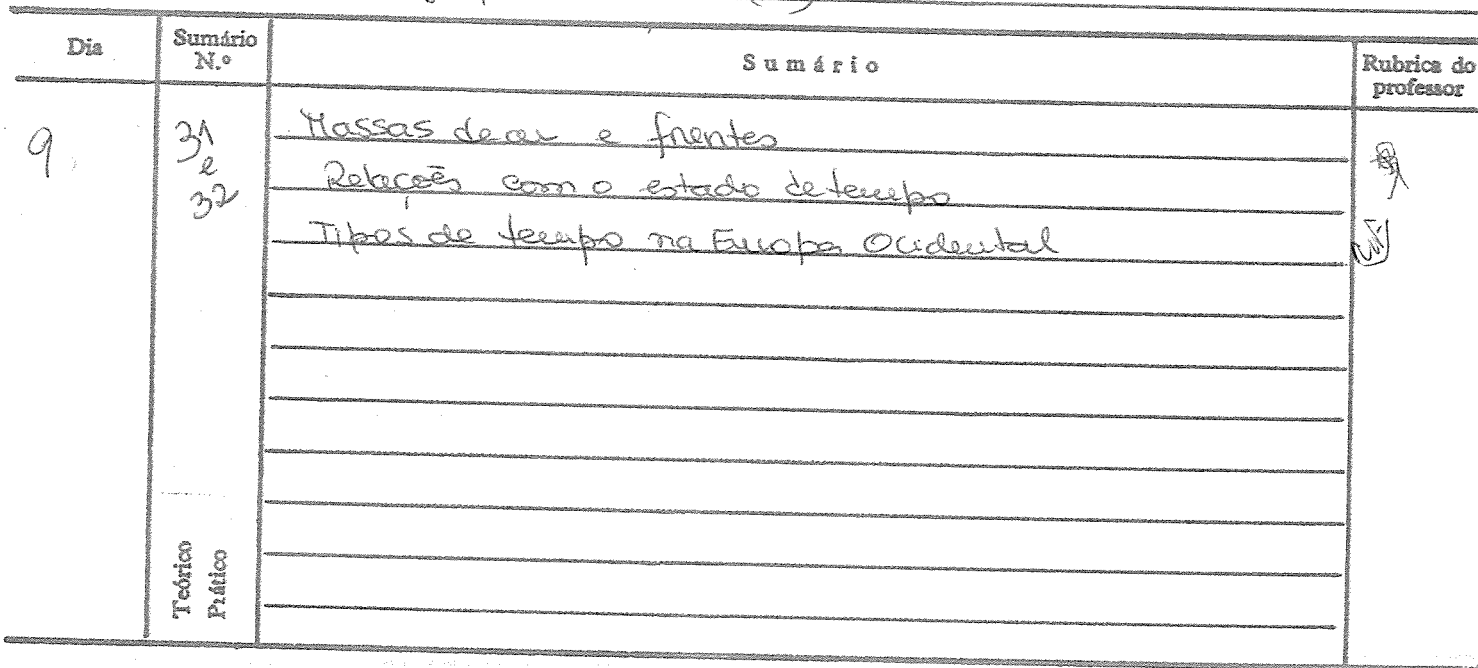 Dia
Sumário N.º
Sumário
Rubrica do professor
9
31 e 32
Massas de ar e frentes
Relações com o estado de tempo
Tipos de tempo na Europa Ocidental
Teórico
Prático